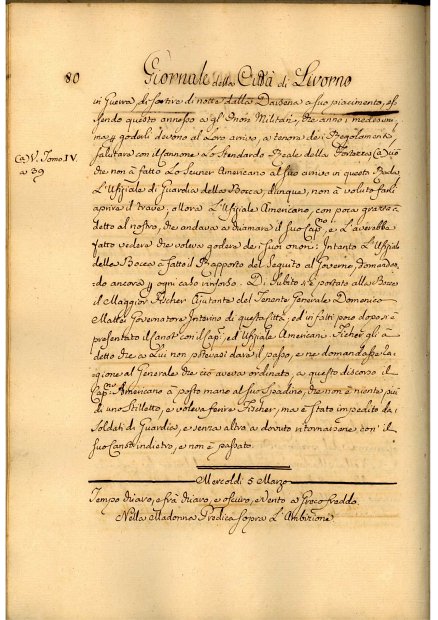 80 Giornale della Città di Livorno
in Guerra, di sortire di notte dalla Darsena a suo piacimento, es-
sendo questo annesso a gl'Onori Militari, che anno i medesimi,
ma goderli devono al Loro arrivo, a tenore dei Regolamenti
salutare con il Cannone lo Stendardo Reale della Fortezza (a) ciò
(a) V. Tomo IV.
a 39
che non à fatto Lo Scuner Americano al suo arrivo in questa Rada
L'Ufiziale di Guardia della Bocca, dunque, non à voluto farli
aprire il trave, allora L'Ufiziale Americano, con poca grazia à
detto al nostro, che andava a chiamare il suo Cap:no e L'averebbe
fatto vedere che voleva godere dei suoi onori: Intanto L'Ufiziale
della Bocca à fatto il Rapporto del Seguito al Governo, domandan-
do ancora ogni caso rinforzo. Di Subito s'è portato alla Bocca
il Maggior Fischer Ajutante del Tenente Generale Domenico
Mattei Governatore Interino di questa Città, ed in fatti poco dopo s'è
presentato il Canot con il Cap:no, ed Ufiziale Americani. Ficher gli à
detto che a Lui non potevasi dare il passo, e ne domandasse La ra-
gione al Generale che ciò aveva ordinato, a questo discorso il
Cap:no Americano à posto mano al suo Spadino, che non è niente più
di uno Stilletto, e voleva ferire Fischer, ma è stato impedito dai
Soldati di Guardia, e senza altro à dovuto ritornarsene con il
suo Canot indietro, e non è passato.
Mercoldì 5 Marzo
Tempo chiaro, e frà chiaro, e oscuro, e Vento a Greco freddo.
Nella Madonna Predica sopra L'Ambizione